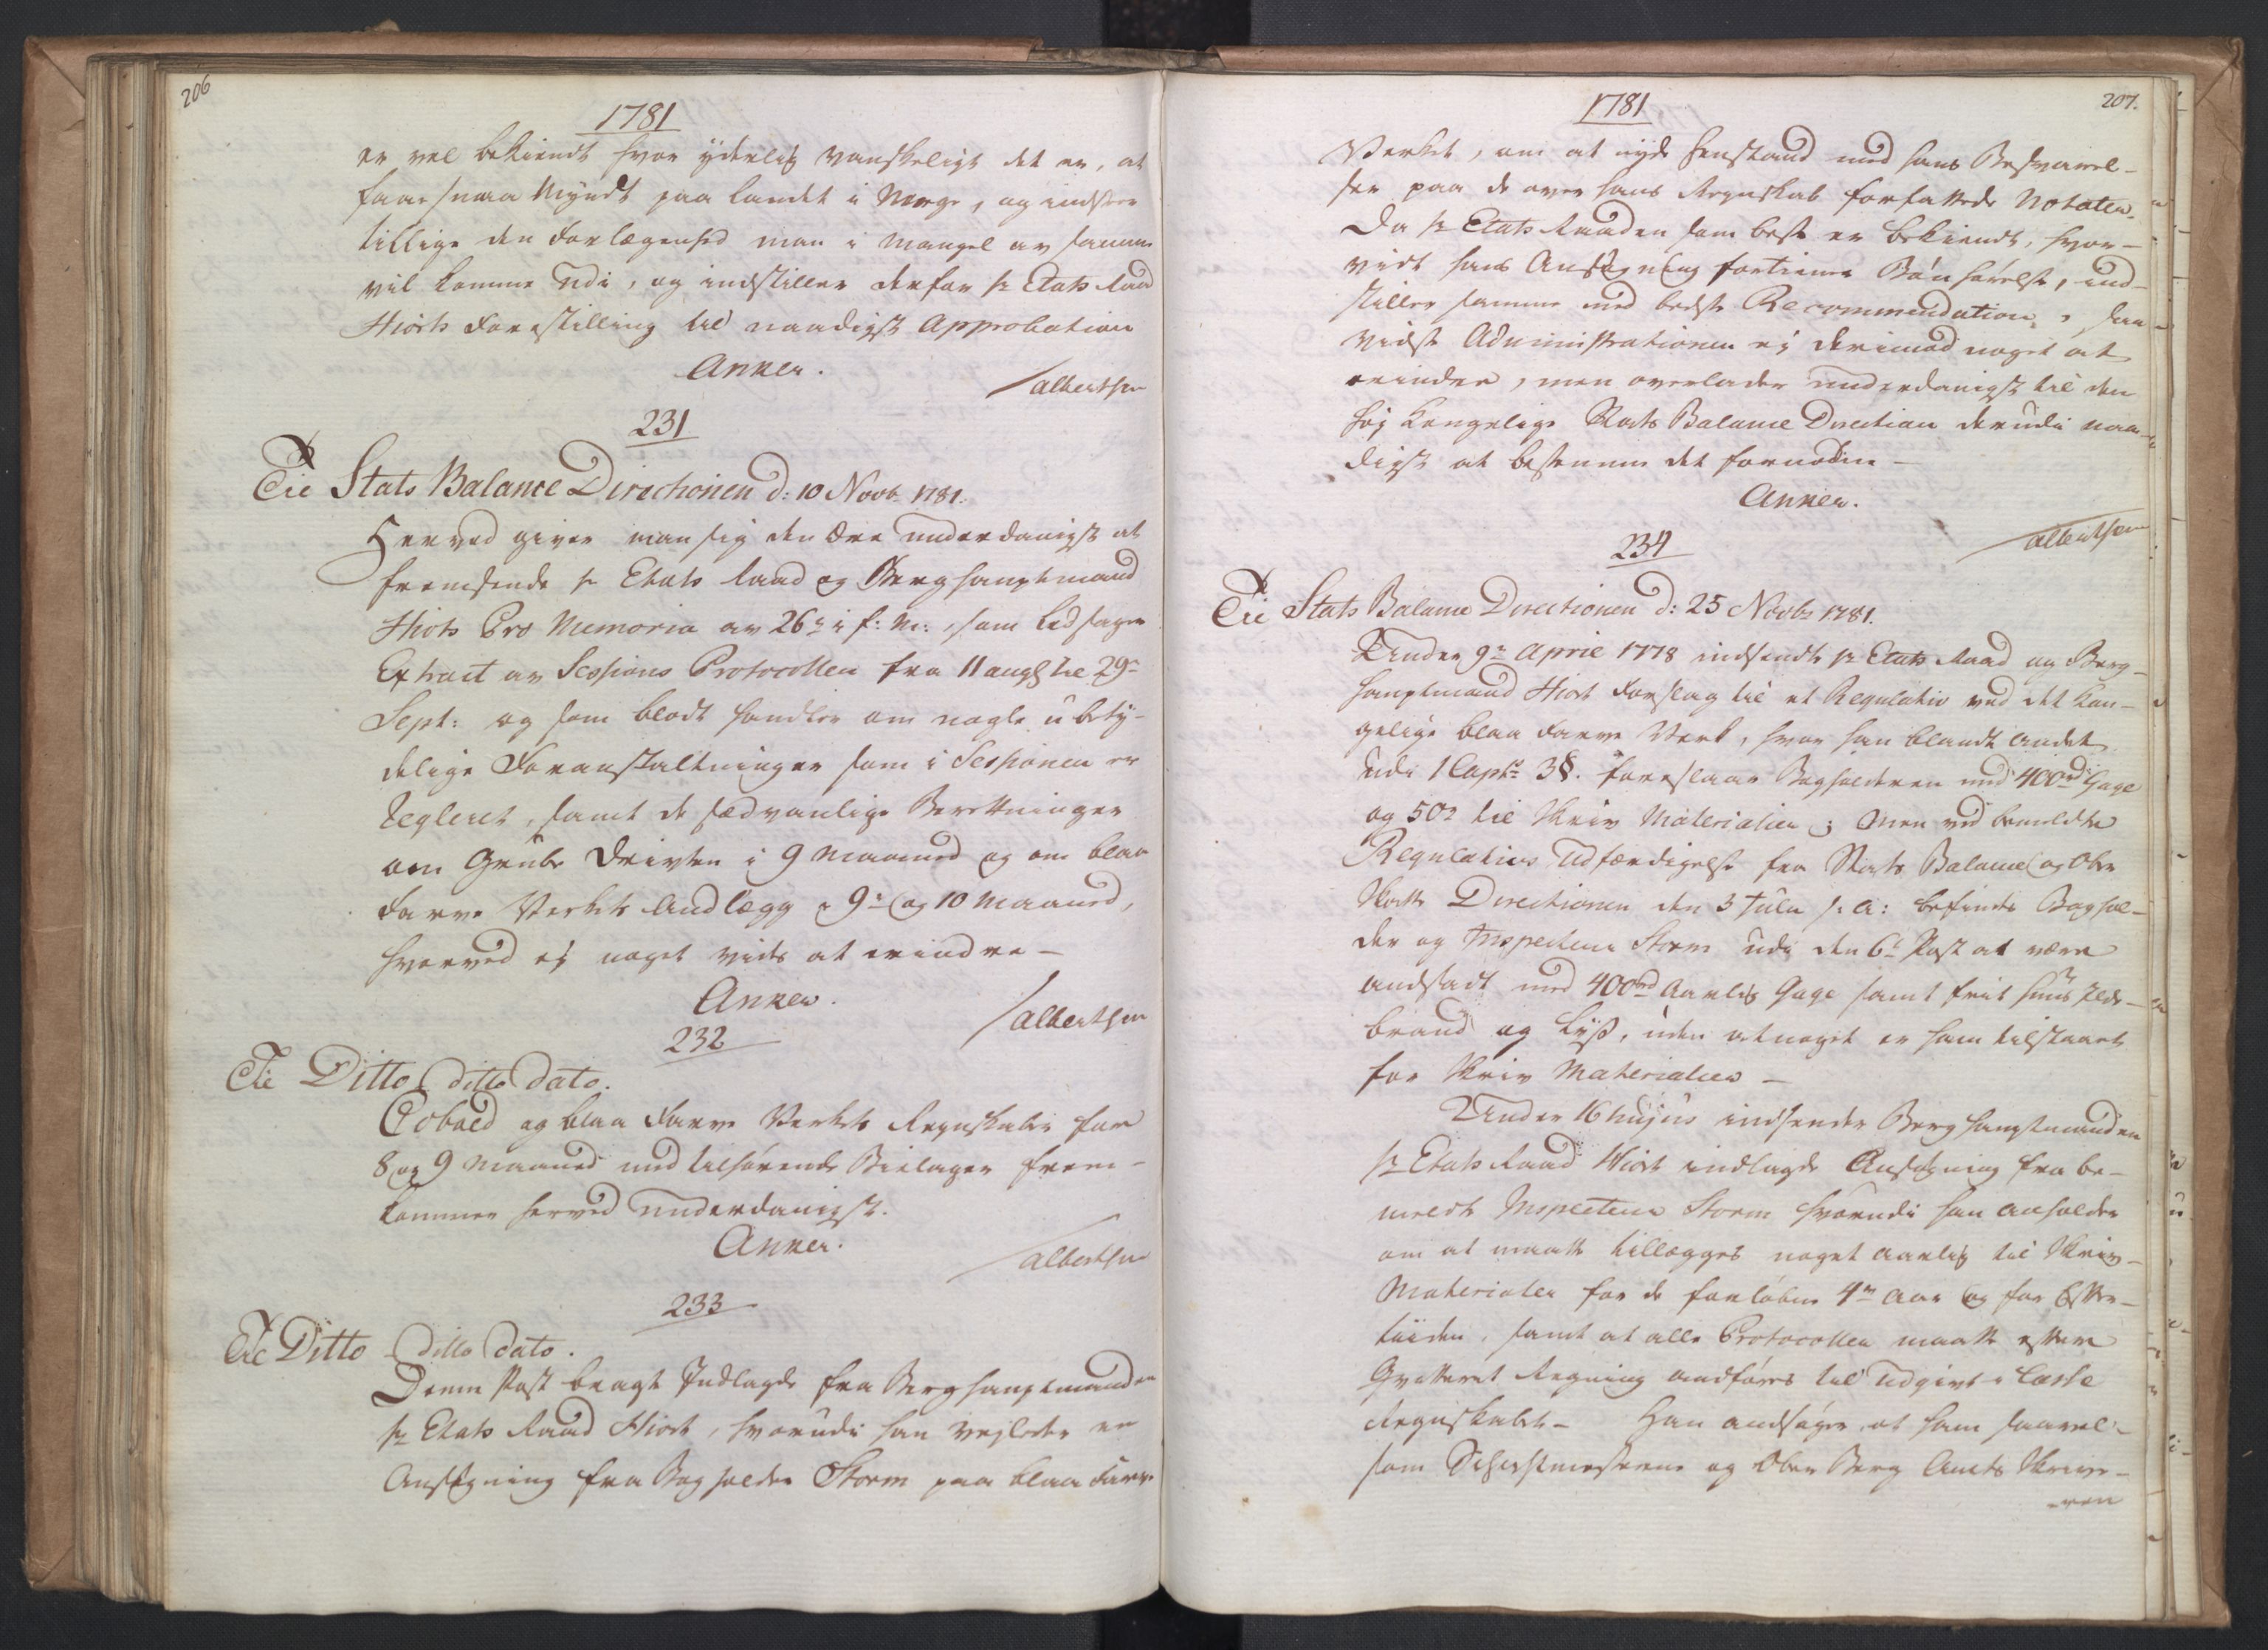 206
1781
er vel bekiendt hvor yderlig vanskeligt det er, at
faae smaa Myndt paa landet i Norge, og indseer
tillige den Forlægenhed man i Mangel av samme
vil komme udi, og indstiller derfor hr Etats Raad
Hiorts Forestilling til naadigst Approbation
Anker.
Albertsen
231
Til Stats Balance Directionen d: 10 Novb 1781.
Herved giver man sig den Ære underdanigst at
fremsende hr Etats Raad og Berghauptmand
Hiorts Pro Memoria av 26de i f: M:, som ledsager
Extract av Sessions Protocollen fra 11 augs til 29de
Sept: og som blodt handler om nogle ubety-
delige Foranstaltninger som i Sessionen er
regleret, samt de sædvanlige Berettninger
om Grube Driften i 9 Maaned og om blaa
Farve Verkets Andlægg i 9de og 10 Maaned,
hvorved ej noget vides at erindre-
Anker.
Albertsen
232
Til Ditto ditto Dato.
Cobold og blaa Farve Verkets Regnskaber for
8 og 9 Maaned med tilhørende Bielager frem-
kommer herved underdanigst.
Anker.
Albertsen
233
Til Ditto ditto Dato.
Denne Post bragte Indlagde fra Berghauptmanden
hr Etats Raad Hiort, hvorudi han vejleder en
Ansøgning fra Bogholder Storm paa blaa Farve
207.
1781
Verket, om at nyde Henstand med hans Besvarel-
ser paa de over hans Regnskab forfattede Notater.
Da hr Etats Raaden som best er bekiendt, hvor-
vidt hans Ansøgning fortiener Bønhørelse, ind-
stiller samme med bedste Recommendation, saa
vidste Administrationen ej derimod noget at
erindre, men overlader underdanigst til den
høj Kongelige Stats Balance Direction derudi naa-
digst at bestemme det fornødne-
Anker.
Albertsen
234
Til Stats Balance Directionen d: 25 Novbr 1781.
Under 9de April 1778 indsendte hr Etats Raad og Berg-
hauptmand Hiort Forslag til et Regulativ ved det Kon-
gelige blaa Farve Verk, hvor han blandt andet
udi 1 Capt 3 §. foreslaar Bogholderen med 400rd Gage
og 50 til Skriv Materialier; Men ved bemeldte
Regulativs Udfærdigelse fra Stats Balance og Ober
Skatte Directionen den 3 Julii s: a: befindes Boghol-
der og Inspecteur Storm udi den 6te Post at være
andsadt med 400rd Aarlig Gage samt frit Huus Ilde-
brand og Lyß, uden at noget er ham tilstaaet
for Skriv Materialier-
Under 16 hujus indsender Berghauptmanden
hr Etats Raad Hiort indlagde Ansøgning fra be-
meldte Inspecteur Storm hvorudi han anholder
om at maatte tillægges noget aarlig til Skriv-
Materialer for de forløbne 4re Aar og for Efter-
tiiden, samt at alle Protocoller maatte efter
Qvitteret Regning andføres til Udgivt i Casse
Regnskabet- Han andsøger at ham saavel-
som og Ober Berg Amts Skriver-
-ren